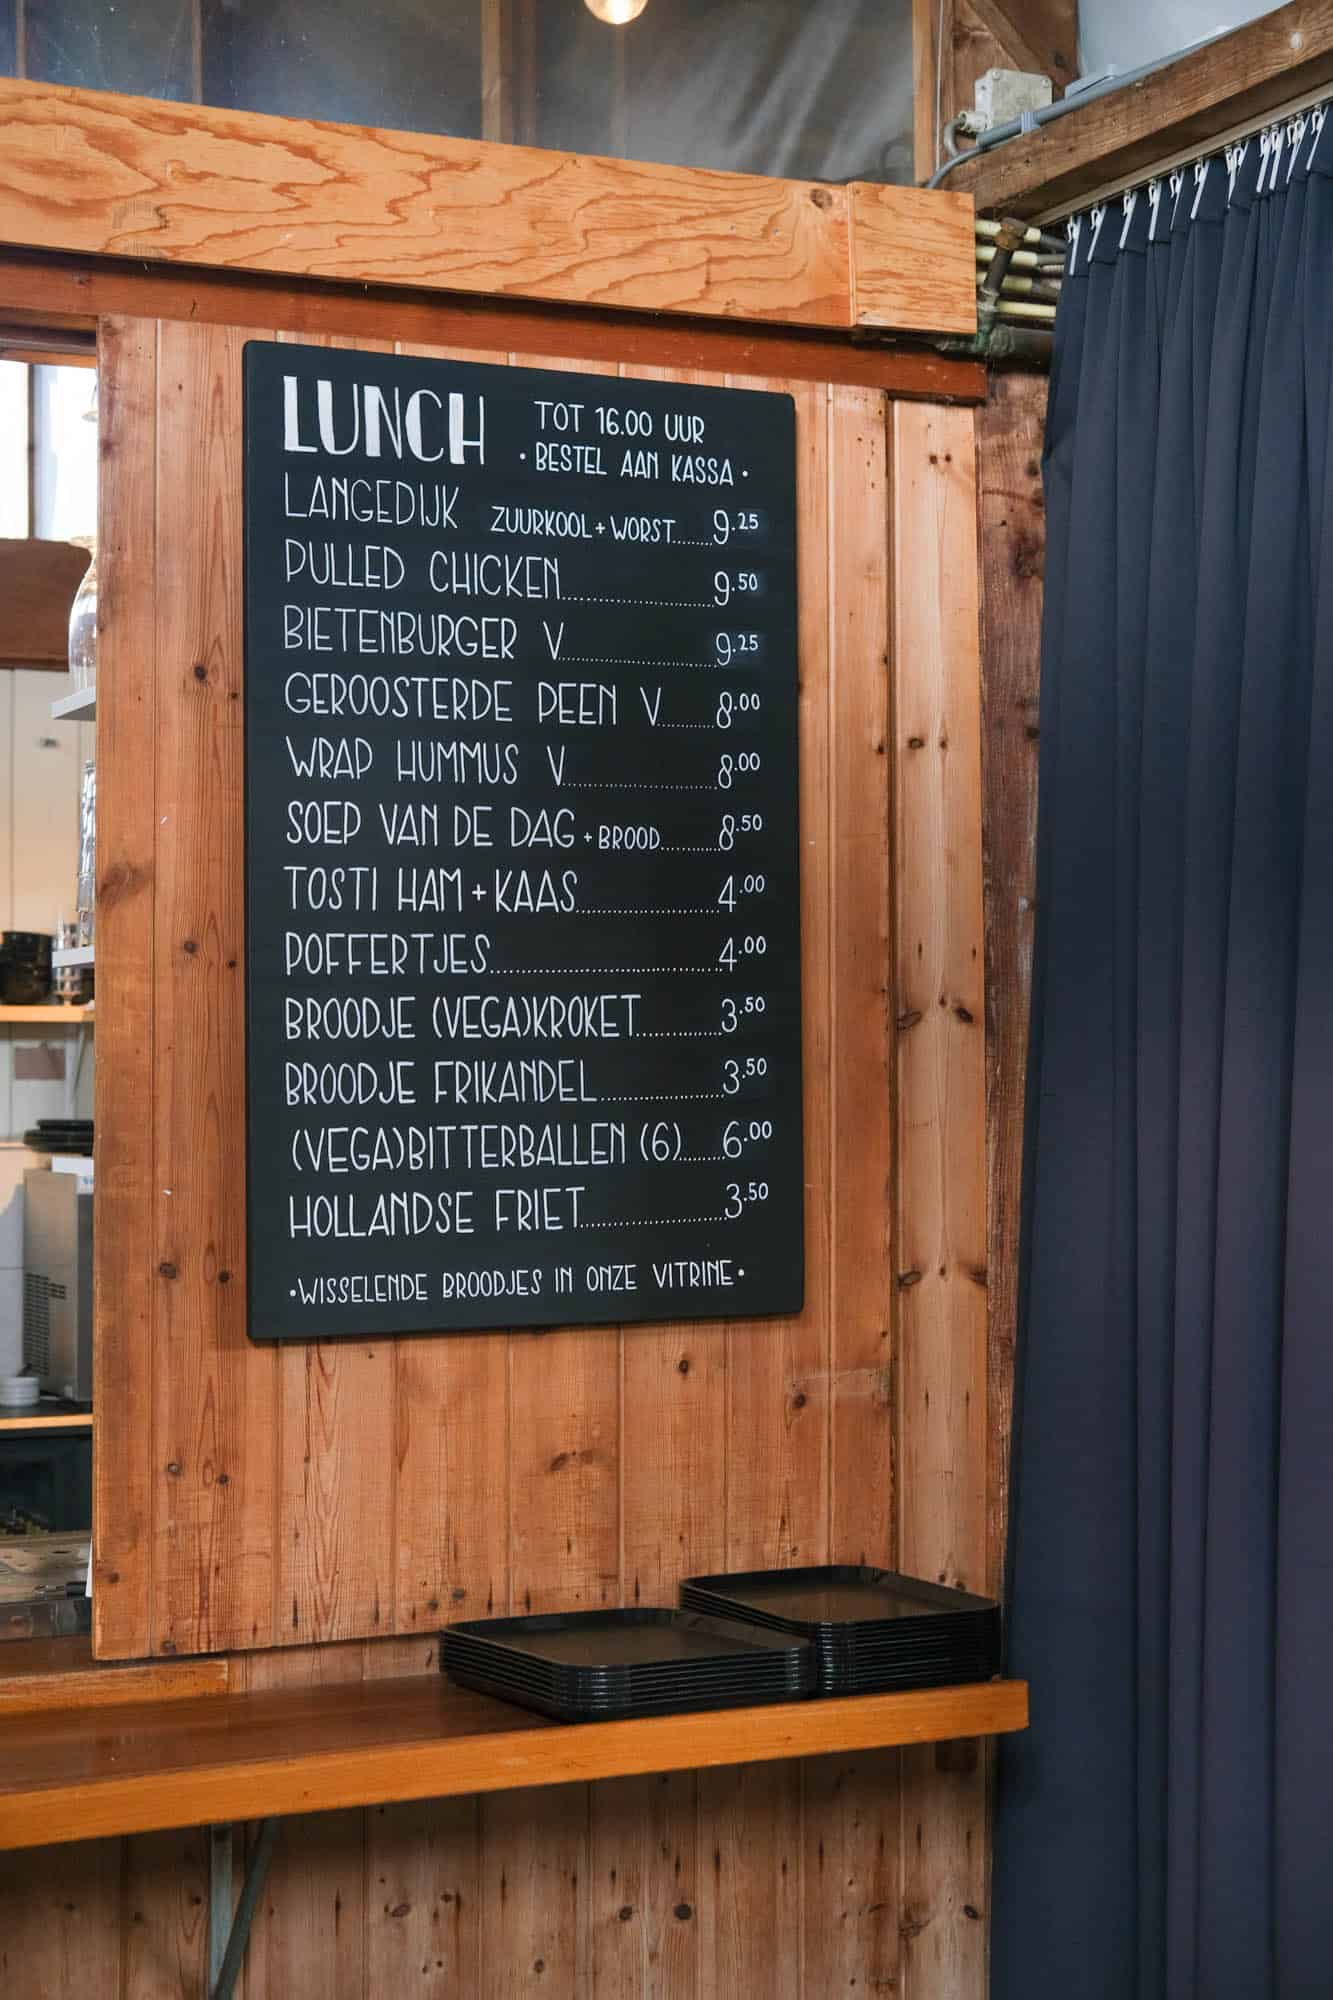 LUNCH TOT 16.00 UUR
• BESTEL AAN KASSA •
LANGEDIJK ZUURKOOL + WORST........9.25
PULLED CHICKEN........9.50
BIETENBURGER V........9.25
GEROOSTERDE PEEN V........8.00
WRAP HUMMUS V........8.00
SOEP VAN DE DAG + BROOD........8.50
TOSTI HAM + KAAS........4.00
POFFERTJES........4.00
BROODJE (VEGA)KROKET........3.50
BROODJE FRIKANDEL........3.50
(VEGA)BITTERBALLEN (6)........6.00
HOLLANDSE FRIET........3.50
•WISSELENDE BROODJES IN ONZE VITRINE•